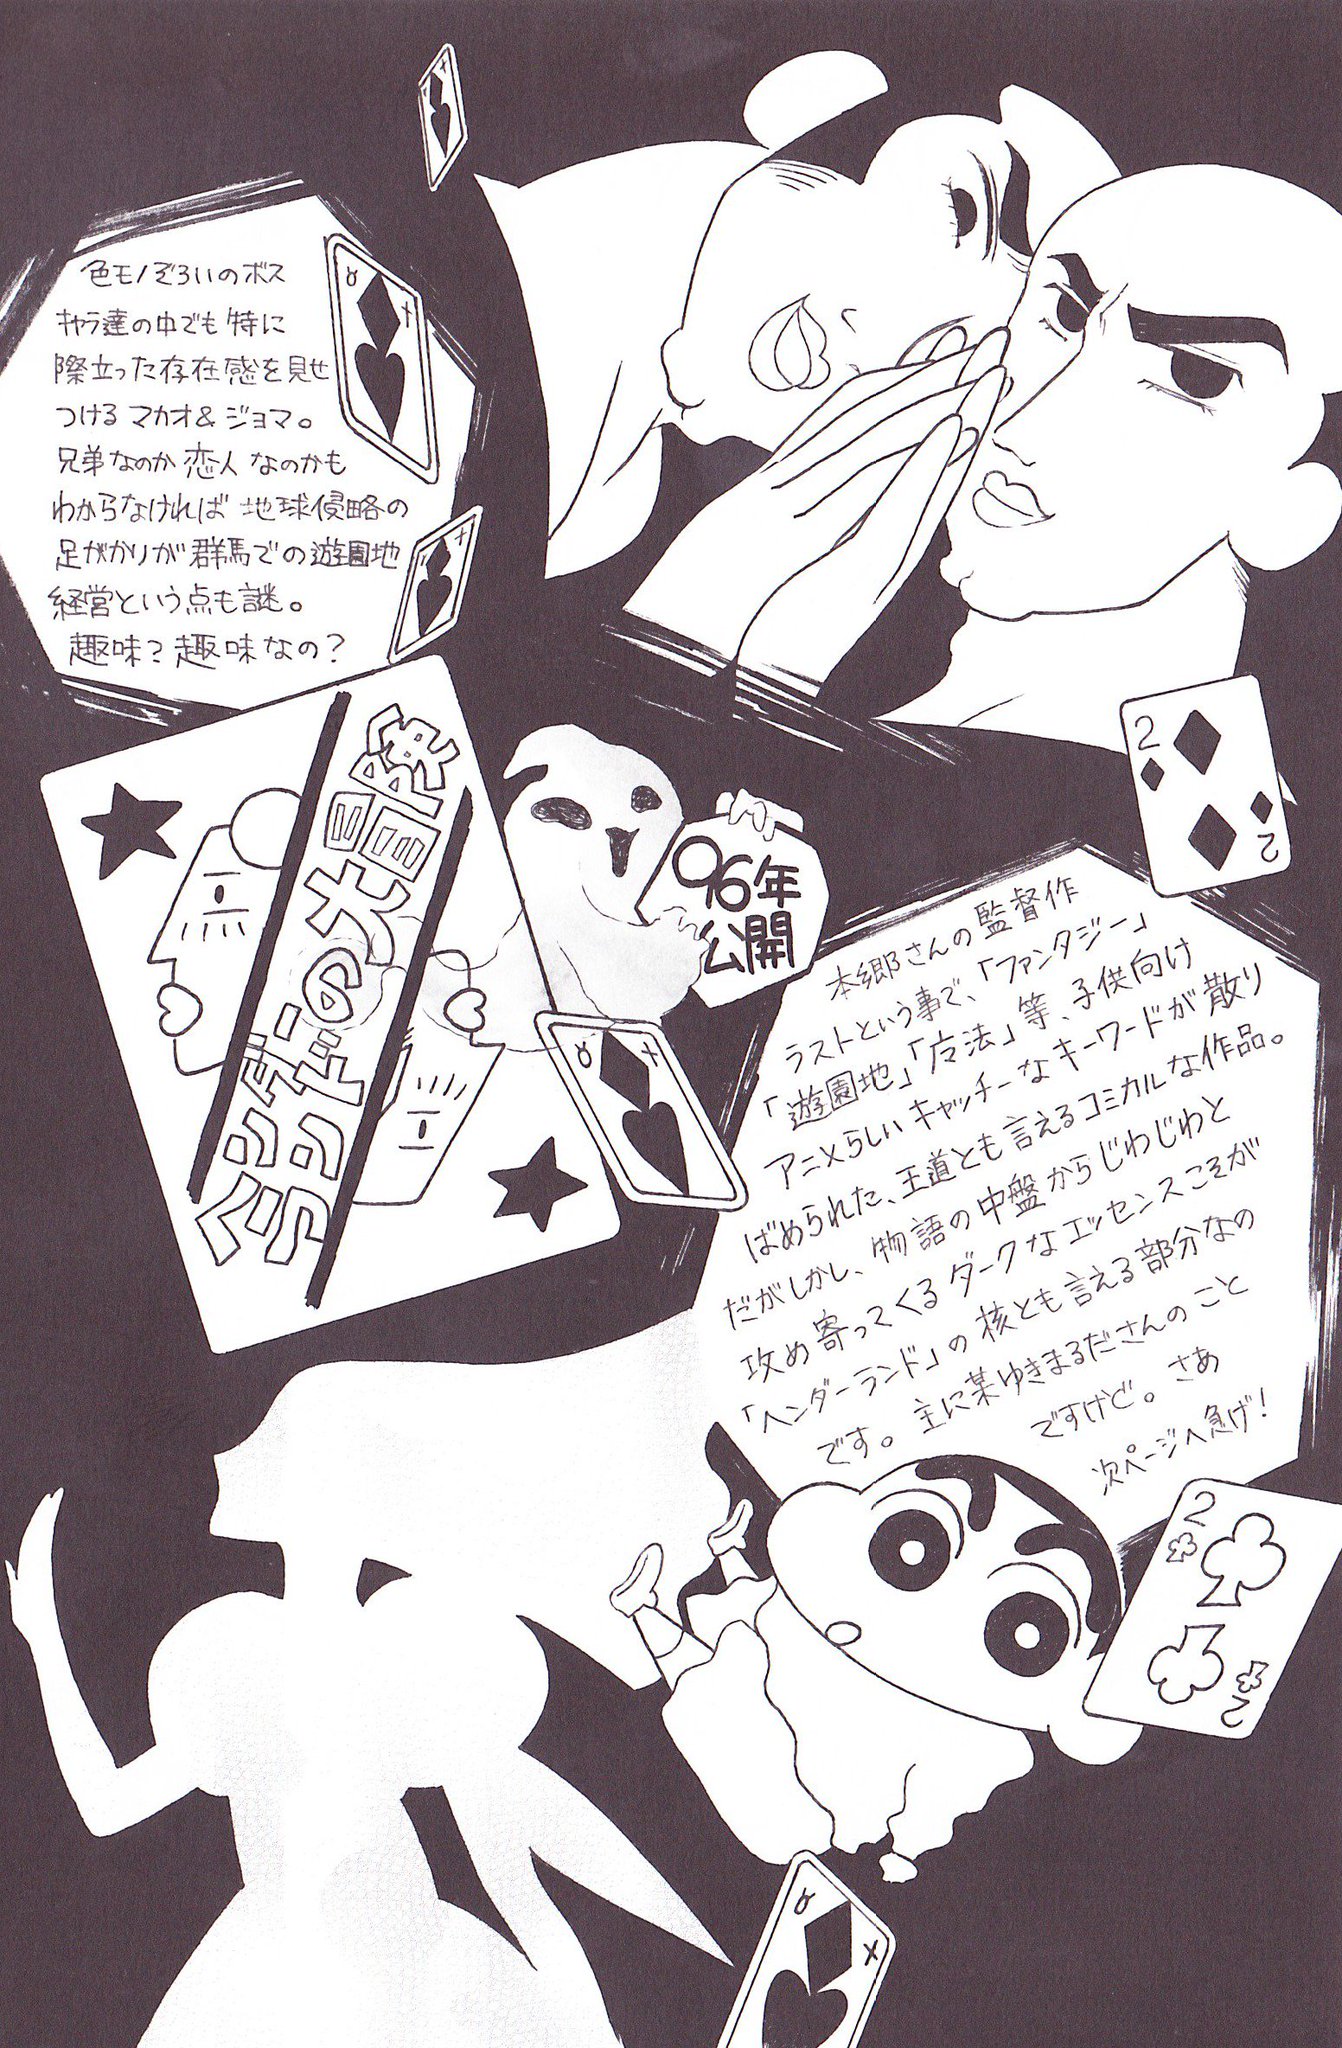 色モノぞろいのボス
キャラ達の中でも特に
際立った存在感を見せ
つけるマカオ&ジョマ。
兄弟なのか恋人なのかも
わからなければ地球侵略の
足がかりが群馬での遊園地
経営という点も謎。
趣味?趣味なの?
ヘンダー
ランドの大冒険
96年
公開
2
2
本郷さんの監督作
ラストという事で、「ファンタジー」
「遊園地」「魔法」等、子供向け
アニメらしいキャッチーなキーワードが散り
ばめられた、王道とも言えるコミカルな作品。
だがしかし、物語の中盤からじわじわと
攻め寄ってくるダークなエッセンスこそが
「ヘンダーランド」の核とも言える部分なの
です。主に某ゆきまるださんのこと
ですけど。さあ
次ページへ急げ!
2
2